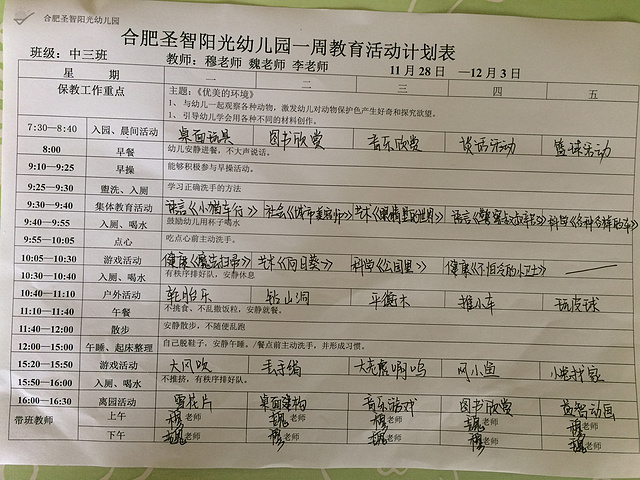 合肥圣智阳光幼儿园
合肥圣智阳光幼儿园一周教育活动计划表
班级：中三班 教师：穆老师 魏老师 李老师 11月28日 —12月3日
星 期 一 二 三 四 五
保教工作重点 主题：《优美的环境》
1、与幼儿一起观察各种动物，激发幼儿对动物保护色产生好奇和探究欲望。
1、引导幼儿学会用各种不同的材料创作。
7:30—8:40 入园、晨间活动 桌面玩具 图书欣赏 音乐欣赏 谈话活动 篮球活动
8:00 早餐 幼儿安静进餐，不大声说话。
9:10—9:25 早操 能够积极参与早操活动。
9:25—9:30 盥洗、入厕 学习正确洗手的方法
9:30—9:40 集体教育活动 语言《小猫车行》 社会《城市美容师》 艺术《眼睛里的世界》 语言 科学
9:40—9:55 入厕、喝水 鼓励幼儿用杯子喝水
9:55—10:05 点心 吃点心前主动洗手。
10:05—10:30 游戏活动 健康 艺术《向日葵》 科学《公园里》 健康《不怕冷的小卫士》
10:30—10:40 入厕、喝水 有秩序排好队，安静休息
10:40—11:10 户外活动 轮胎乐 钻山洞 平衡木 推小车 玩皮球
11:10—11:40 午餐 不挑食、不乱撒饭粒，安静就餐。
11:40—12:00 散步 安静散步，不随便乱跑
12:00—15:00 午睡、起床整理 自己脱鞋子，安静午睡。/餐点前主动洗手，并形成习惯。
15:20—15:50 游戏活动 大风吹 大老虎啊呜 网小鱼
15:50—16:00 入厕、喝水 不推挤，有秩序排好队。
16:00—16:30 离园活动 雪花片 桌面建构 音乐游戏 图书欣赏 益智动画
带班教师 上午 穆老师 魏老师 穆老师 魏老师 穆老师
下午 魏老师 穆老师 魏老师 穆老师 魏老师